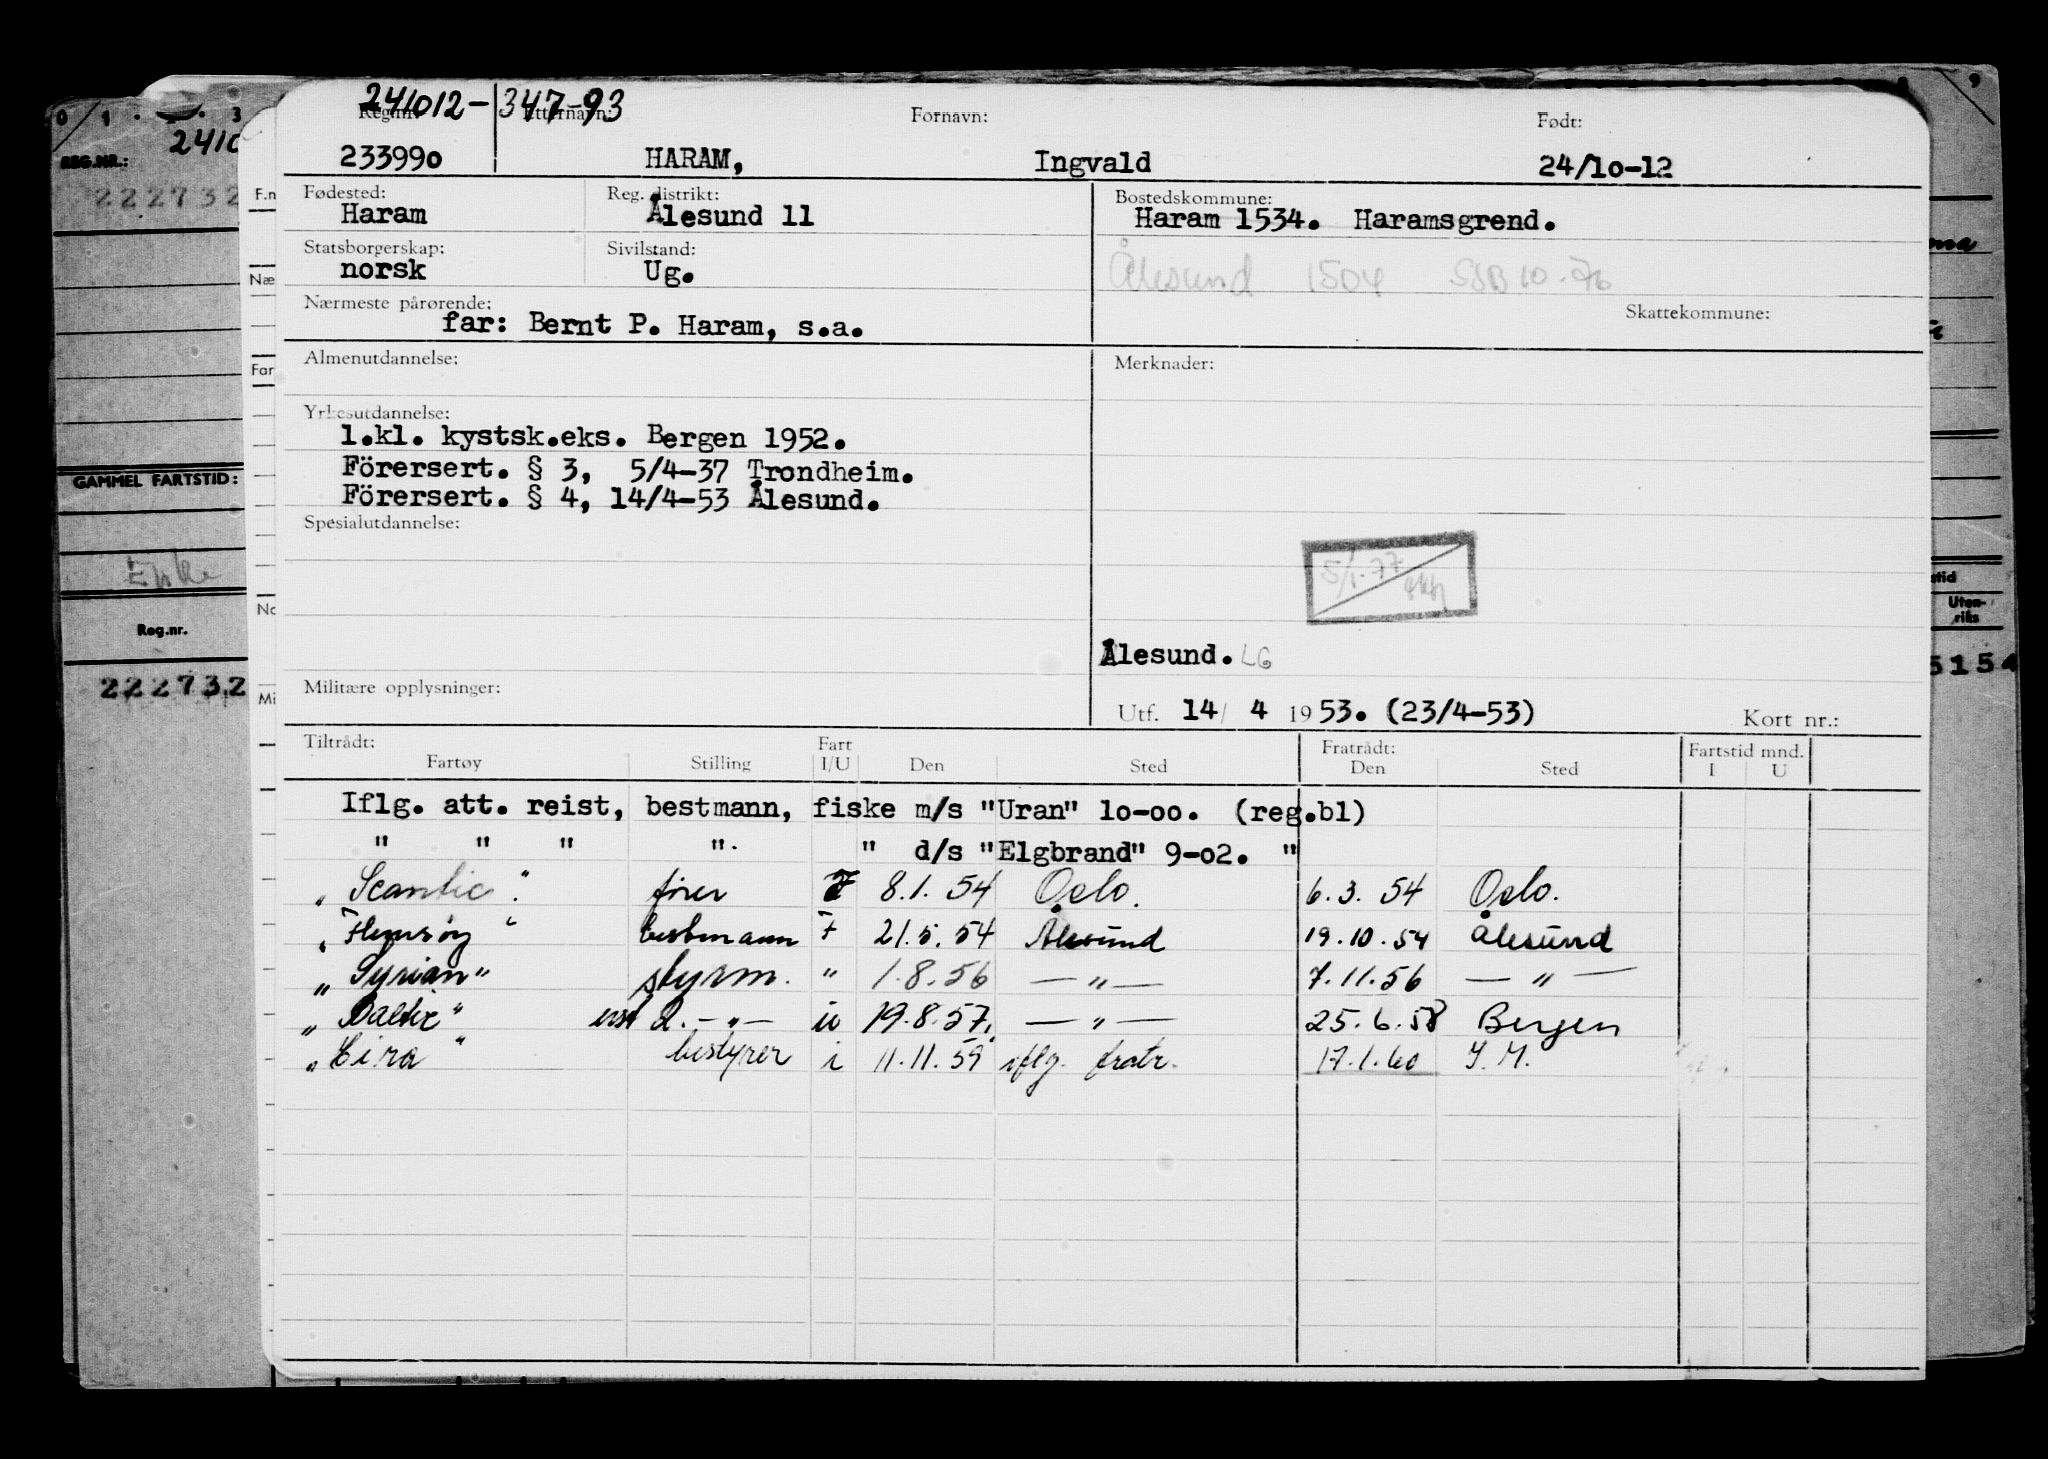 241012-347-93
Reg.nr. Etternavn: Fornavn: Født:
233990 HARAM, Ingvald 24/10-12
Fødested: Reg. distrikt: Bostedskommune:
Haram Ålesund 11 Haram 1534. Haramsgrend.
Statsborgerskap: Sivilstand:
norsk Ug. Ålesund 1504 SSB 10-76
Nærmeste pårørende: Skattekommune:
far: Bernt P. Haram, s.a.
Almenutdannelse: Merknader:
Yrkesutdannelse:
1.kl. kystsk.eks. Bergen 1952.
Förersert. § 3, 5/4-37 Trondheim.
Förersert. § 4, 14/4-53 Ålesund.
Spesialutdannelse:
5/1-77
Ålesund. LG
Militære opplysninger:
Utf. 14/ 4 1953. (23/4-53) Kort nr.:
Tiltrådt: Fart Fratrådt: Fartstid mnd.
Fartøy Stilling I/U Den Sted Den Sted I U
Iflg. att. reist, bestmann, fiske m/s "Uran" 10-00. (reg.bl)
" " " ". " d/s "Elgbrand" 9-02. "
"Scantic". fører F 8.1. 54 Oslo. 6.3. 54 Oslo.
"Flemsøy" bestmann F 21.5.54 Ålesund 19.10.54 Ålesund
"Syrian" styrm. " 1.8.56 — " — 7.11.56 — " —
"Baltic" 2. - " - u 19.8.57. — " — 25.6.58 Bergen
"Eira" bestyrer i 11.11.59 iflg. fratr. 17.1.60 I.M.
0 1 3
2410
REG.NR.:
222732
GAMMEL FARTSTID:
Reg.nr.
222732
F.n
Næ
Far
No
Mi
9
stid
Uten-
riks
5154